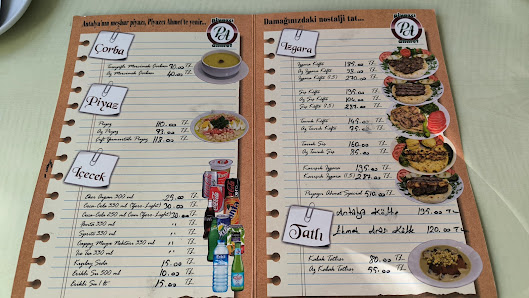 Antalya'nın meşhur piyazı, Piyazcı Ahmet'te yenir...
Piyazcı
PA
Ahmet
Çorba
Tereyağlı Mercimek Çorbası 70.00 TL
Az Mercimek Çorbası 40.00 TL
Piyaz
Piyaz 110.00 TL
Az Piyaz 93.00 TL
Çift Yumurtalı Piyaz 118.00 TL
İçecek
Eker Ayran 300 ml 25.00 TL
Coca Cola 330 ml (Zero-Light) 30.00 TL
Coca Cola 250 ml Cam (Zero-Light) 30.00 TL
Fanta 330 ml " TL
Sprite 330 ml " TL
Cappy Meyve Nektarı 330 ml " TL
Ice Tea 330 ml " TL
Kızılay Soda 15.00 TL
Erikli Su 500 ml 10.00 TL
Erikli Su 1 lt 15.00 TL
Damağınızdaki nostalji tat...
Piyazcı
PA
Ahmet
Izgara
Izgara Köfte 185.00 TL
Az Izgara Köfte 98.00 TL
Izgara Köfte (1.5) 280.00 TL
Şiş Köfte 195.00 TL
Az Şiş Köfte 104.00 TL
Şiş Köfte (1.5) 287.00 TL
Tavuk Köfte 145.00 TL
Az Tavuk Köfte 75.00 TL
Tavuk Şiş 160.00 TL
Az Tavuk Şiş 85.00 TL
Karışık Izgara 195.00 TL
Karışık Izgara (1.5) 287.00 TL
Piyazcı Ahmet Special 510.00 TL
Antalya Köfte 195.00 TL
120.00 TL
Tatlı
Kabak Tatlısı 80.00 TL
Az Kabak Tatlısı 55.00 TL